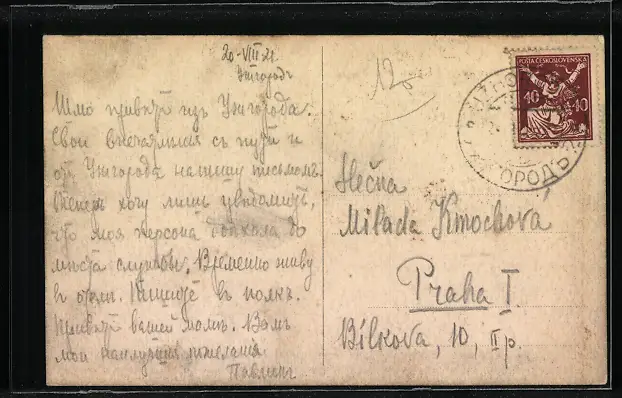 20-VIII 21
Ужгородъ
Шлю привѣтъ изъ Ужгорода.
Свои впечатлѣнія съ пути и
отъ Ужгорода напишу письмомъ.
Теперь хочу лишь увѣдомить,
что моя персона доѣхала до
мѣста службы. Временно живу
въ отелѣ. Пишите въ полкъ.
Привѣтъ вашей мамѣ. Вамъ
мои наилучшія пожеланія
12
POŠTA ČESKOSLOVENSKÁ
40 40
UŽHO
ГОРОДЪ
Slečna
Milada Kmochová
Praha I
Bílkova, 10, II p.